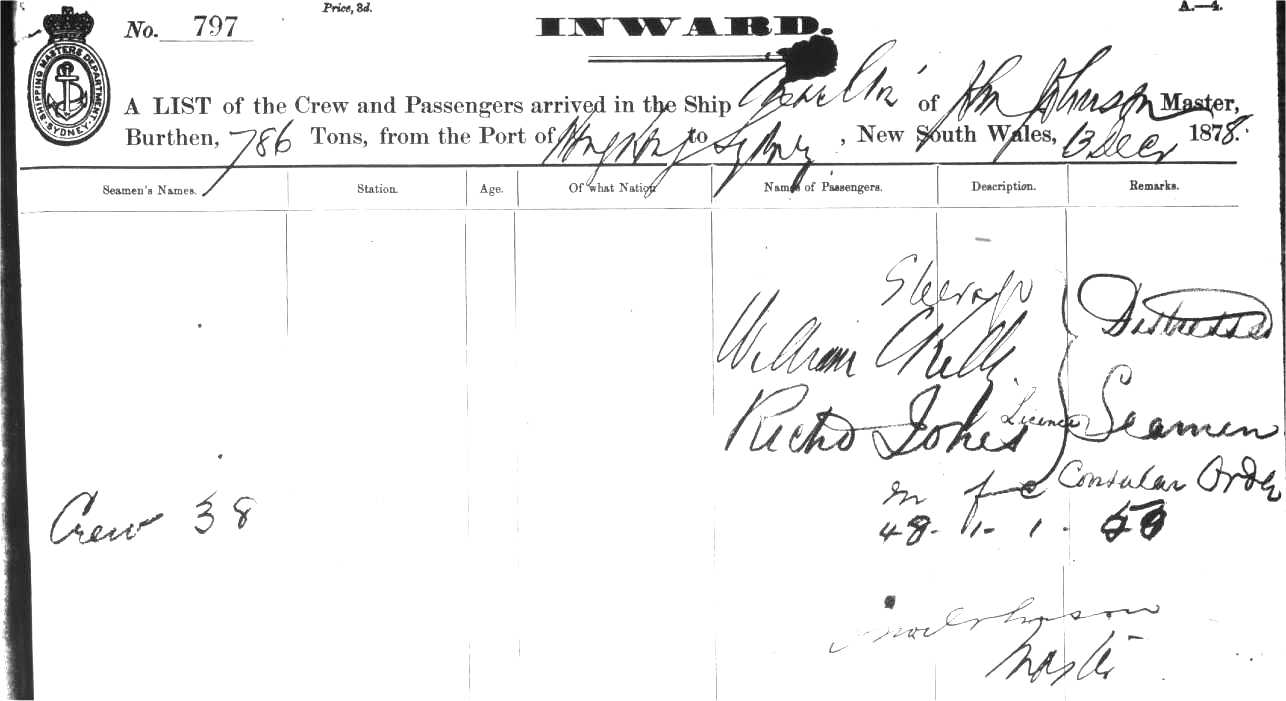 Price, 3d.
A.—4.
No. 797
INWARD.
SHIPPING MASTERS DEPARTMENT SYDNEY
A LIST of the Crew and Passengers arrived in the Ship of Jhn Johnson Master,
Burthen, 786 Tons, from the Port of Hong Kong to Sydney, New South Wales, 13 Decr 1878.
Seamen's Names. Station. Age. Of what Nation Names of Passengers. Description. Remarks.
Steerage
William Kelly Distressed
Richd Jones Licence Seamen
m f c Consular Order
Crew 38 48. 1- 1. 50
Johnson
Master